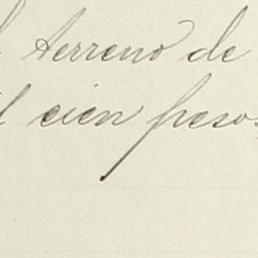 terreno de
cien pesos